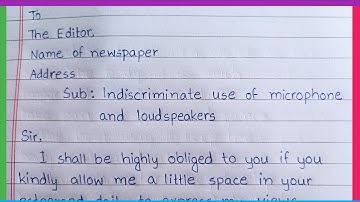 To
The Editor,
Name of newspaper
Address
Sub: Indiscriminate use of microphone
and loudspeakers
Sir,
I shall be highly obliged to you if you
kindly allow me a little space in your
esteemed daily to express my views